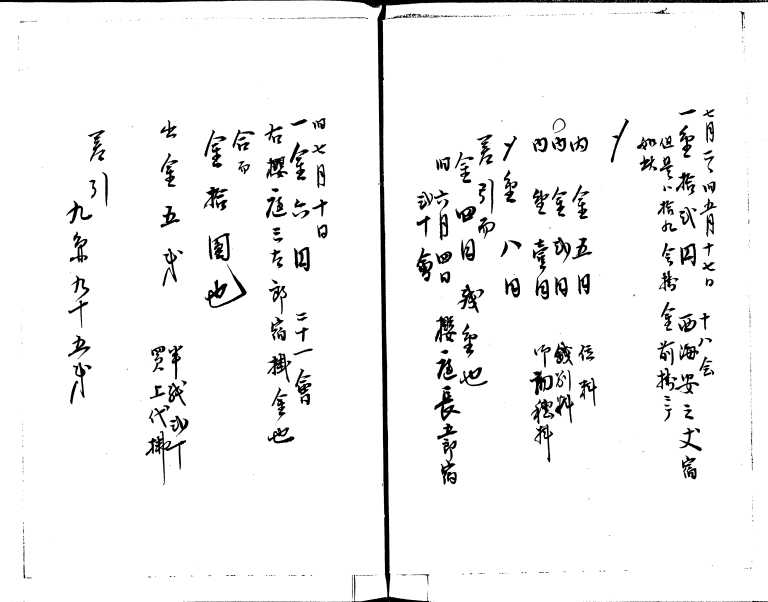 七月二日 旧五月十七日 十八会
一金拾弐円 西海安之丈宿
但是ハ拾九会掛金前掛ニ
如此
〆
内 金五円 位料
内 金弐円 餞別料
内 金壱円 御初穂料
〆金八円
差引而
金四円 残金也
旧六月四日 櫻庭長五郎宿
弐十會
旧七月十日
一金六円 二十一會
右櫻庭三太郎宿掛金也
合而
金拾圓也
出金五銭 半紙弐丁
買上代拂
差引
九円九十五銭